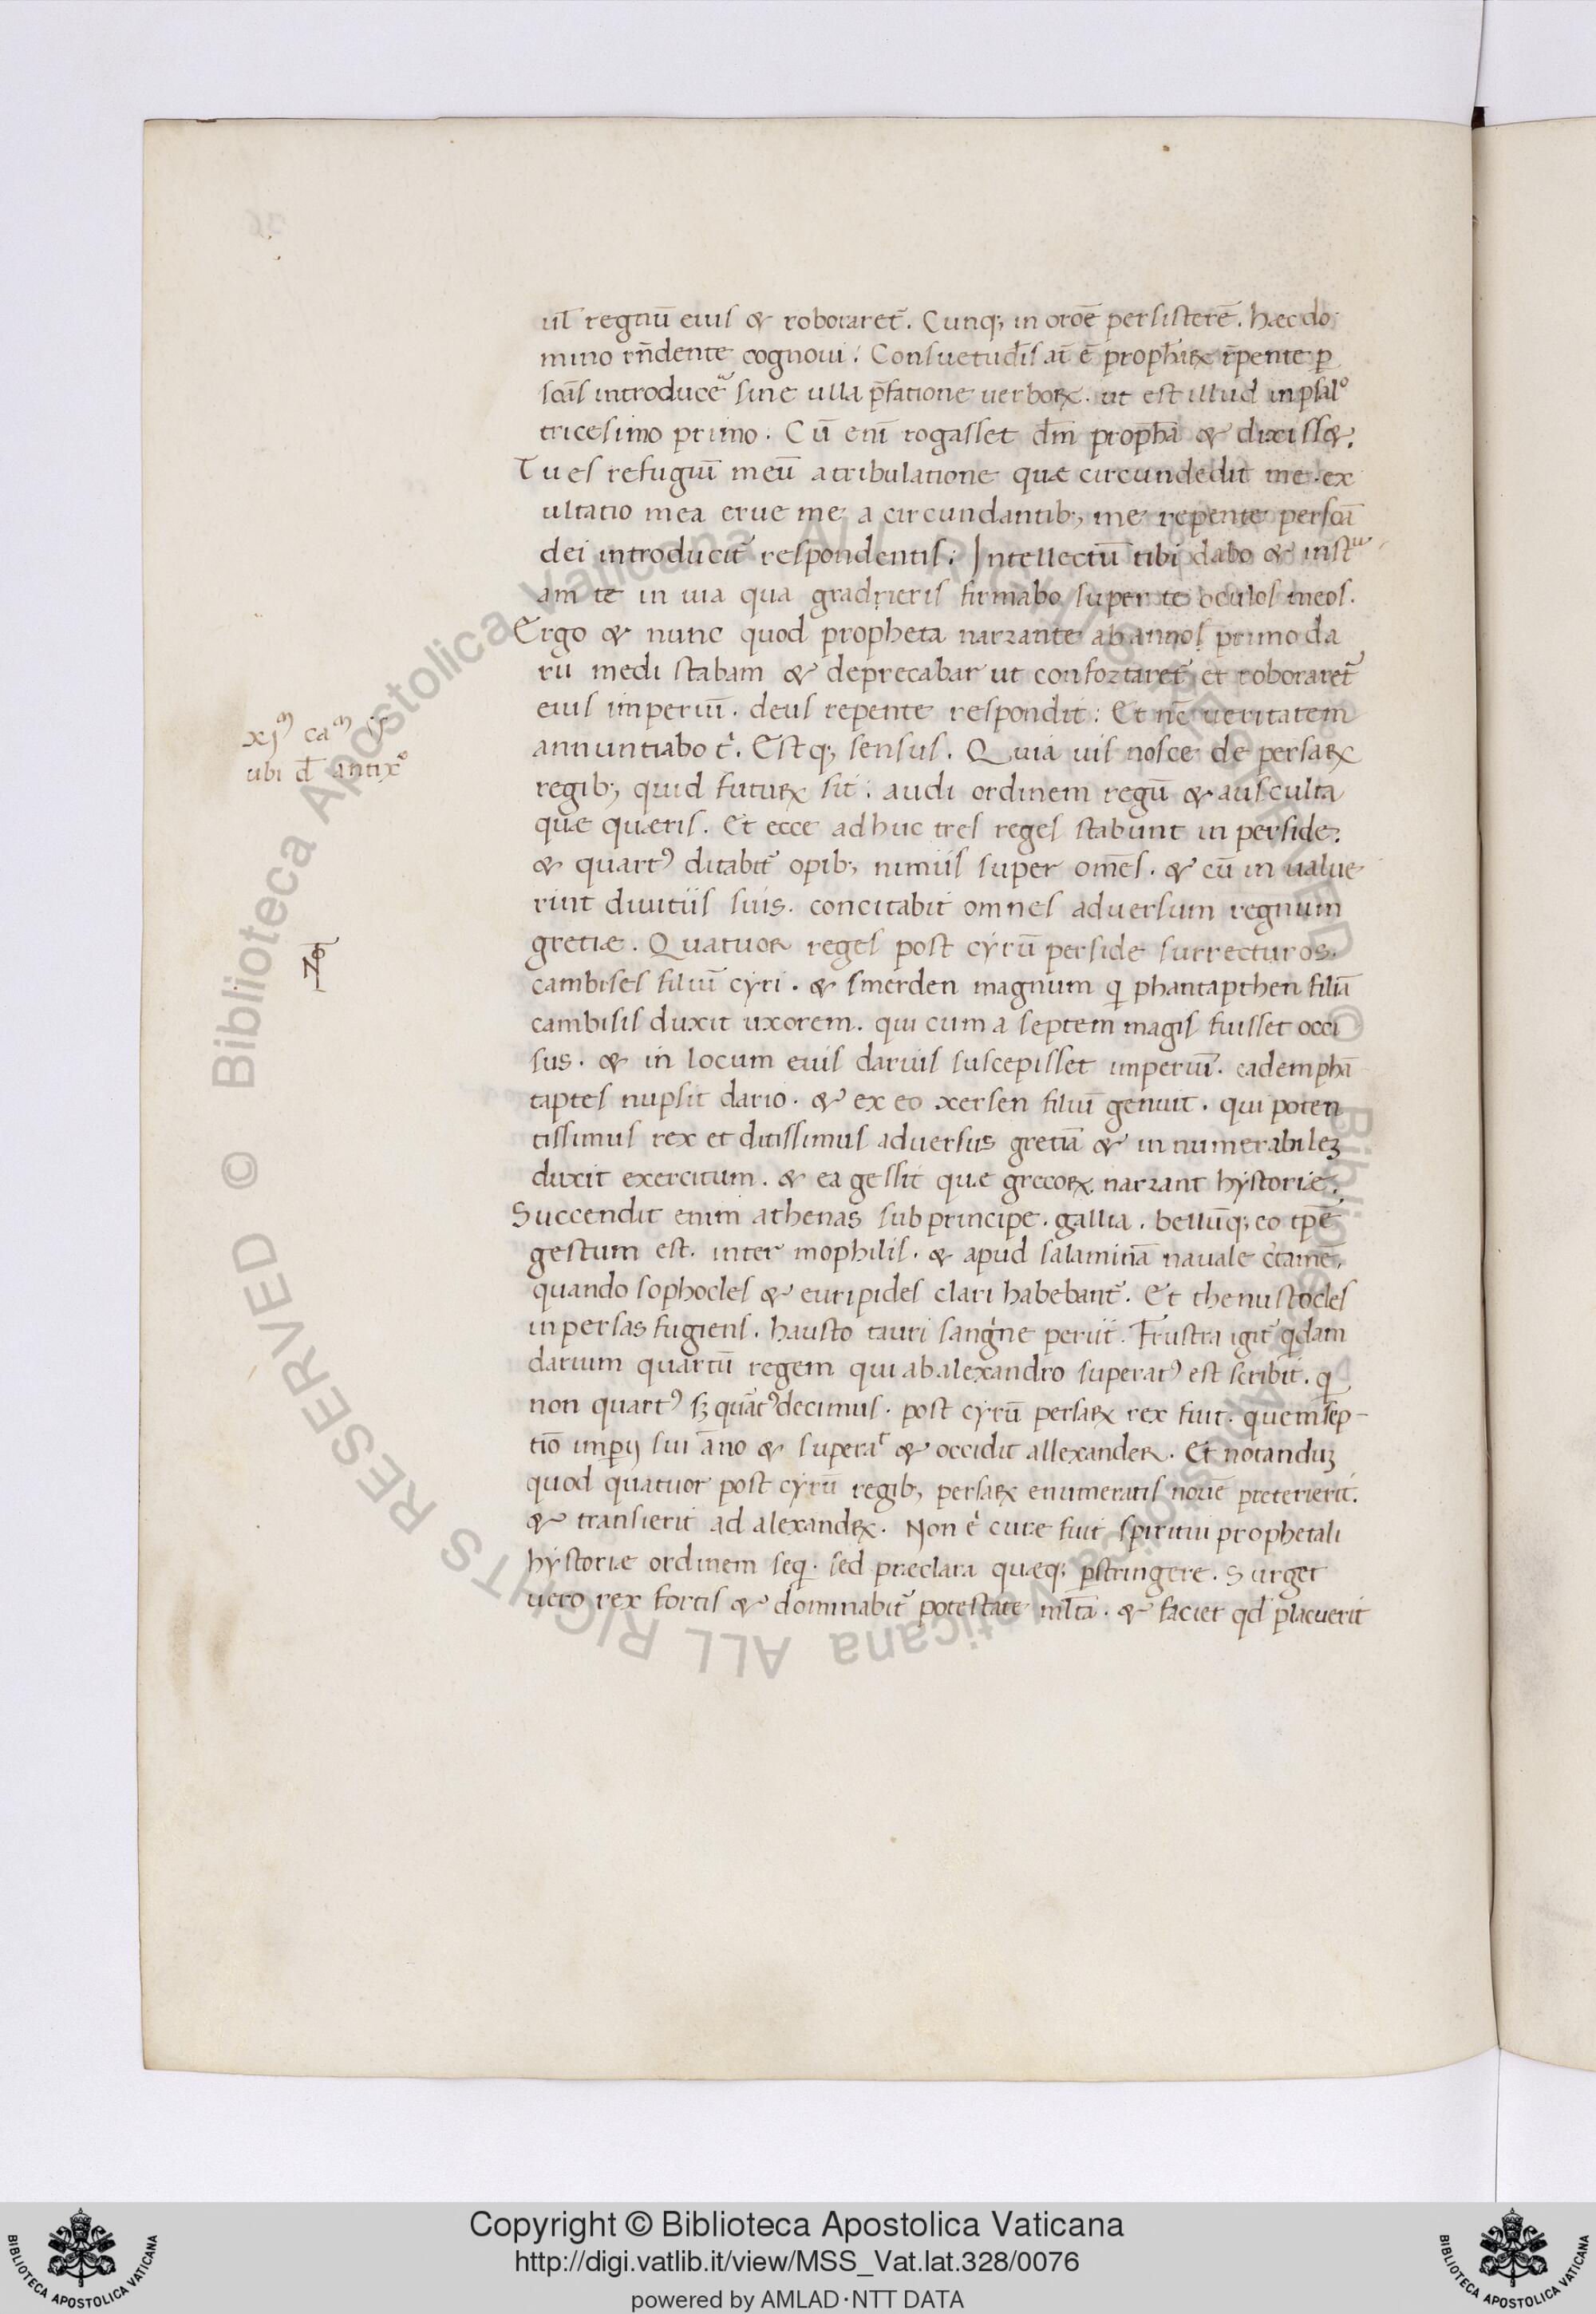 ul̄ regnū eius & roboraret᷒. Cunq; in oroē persisterē. hæc do
mino rn̄dente cognoui. Consuetud̄is aī ē prophaꝝ rēpente ꝑ
sonā̄s introducē sine ulla p̄fatione uerboꝝ. ut est illud in psal°
tricesimo primo. Cū enī rogasset dm̄ prophā & dixiss&.
Tu es refugiū meū a tribulatione quæ circundedit me. ex
ultatio mea erue me a circundantib; me repente persoā
dei introducit᷒ respondentis. Intellectū tibi dabo & instru
am te in uia qua gradieris firmabo super te oculos meos.
Ergo & nunc quod propheta narrante ab anno primo da
rii medi stabam & deprecabar ut confortaret᷒ et roboraret᷒
eius imperiū. deus repente respondit: Et nc̄ ueritatem
annuntiabo t̉. Estq; sensus. Quia uis nosce de persaꝝ
regib; quid futuꝝ sit: audi ordinem regū & ausculta
quæ quæris. Et ecce adhuc tres reges stabunt in perside.
& quartꝰ ditabit᷒ opib; nimiis super om̄es. & cū inualue
rint diuitiis suis. concitabit omnes aduersum regnum
gretiæ. Quatuor reges post cyrū perside surrecturos.
cambises filiū cyri. & smerden magnum q̇ phantapthen filiā
cambisis duxit uxorem. qui cum a septem magis fuisset occi
sus. & in locum eius darius suscepisset imperiū. eadem phā
taptes nupsit dario. & ex eo xersen filiū genuit. qui poten
tissimus rex et ditissimus aduersus gretiā & innumerabileꝫ
duxit exercitum. & ea gessit quæ grecoꝝ narrant hystoriæ.
Succendit enim athenas sub principe. gallia. bellūq; eo tp̄e
gestum est. inter mophilis. & apud salaminā nauale c̄tamē.
quando sophocles & euripides clari habebant᷒. Et themistocles
in persas fugiens. hausto tauri sangīne periit. Frustra igit᷒ qdam
darium quartū regem qui ab alexandro superatꝰ est scribit. q̇
non quartꝰ sꝫ quātꝰdecimus. post cyrū persaꝝ rex fuit. quem sep-
tīo imꝑij sui āno & superaͭ & occidit allexander. Et notanduꝫ
quod quatuor post cyrū regib; persaꝝ enumeratis nouē preterierit.
& transierit ad alexandꝝ. Non ē̉ curæ fuit spiritui prophetali
hystoriæ ordinem seq̇. sed præclara quæq; ꝑstringere. Surget
uero rex fortis & dominabit᷒ potestate ml̄ta. & faciet qd̄ placuerit
xjᵐ caᵐ
ubi d̄ antix°
No
Copyright © Biblioteca Apostolica Vaticana
http://digi.vatlib.it/view/MSS_Vat.lat.328/0076
powered by AMLAD·NTT DATA
BIBLIOTECA APOSTOLICA VATICANA
BIBLIOTECA APOSTOLICA VATICANA
© Biblioteca Apostolica Vaticana ALL RIGHTS RESERVED © Biblioteca Apostolica Vaticana ALL RIGHTS RESERVED